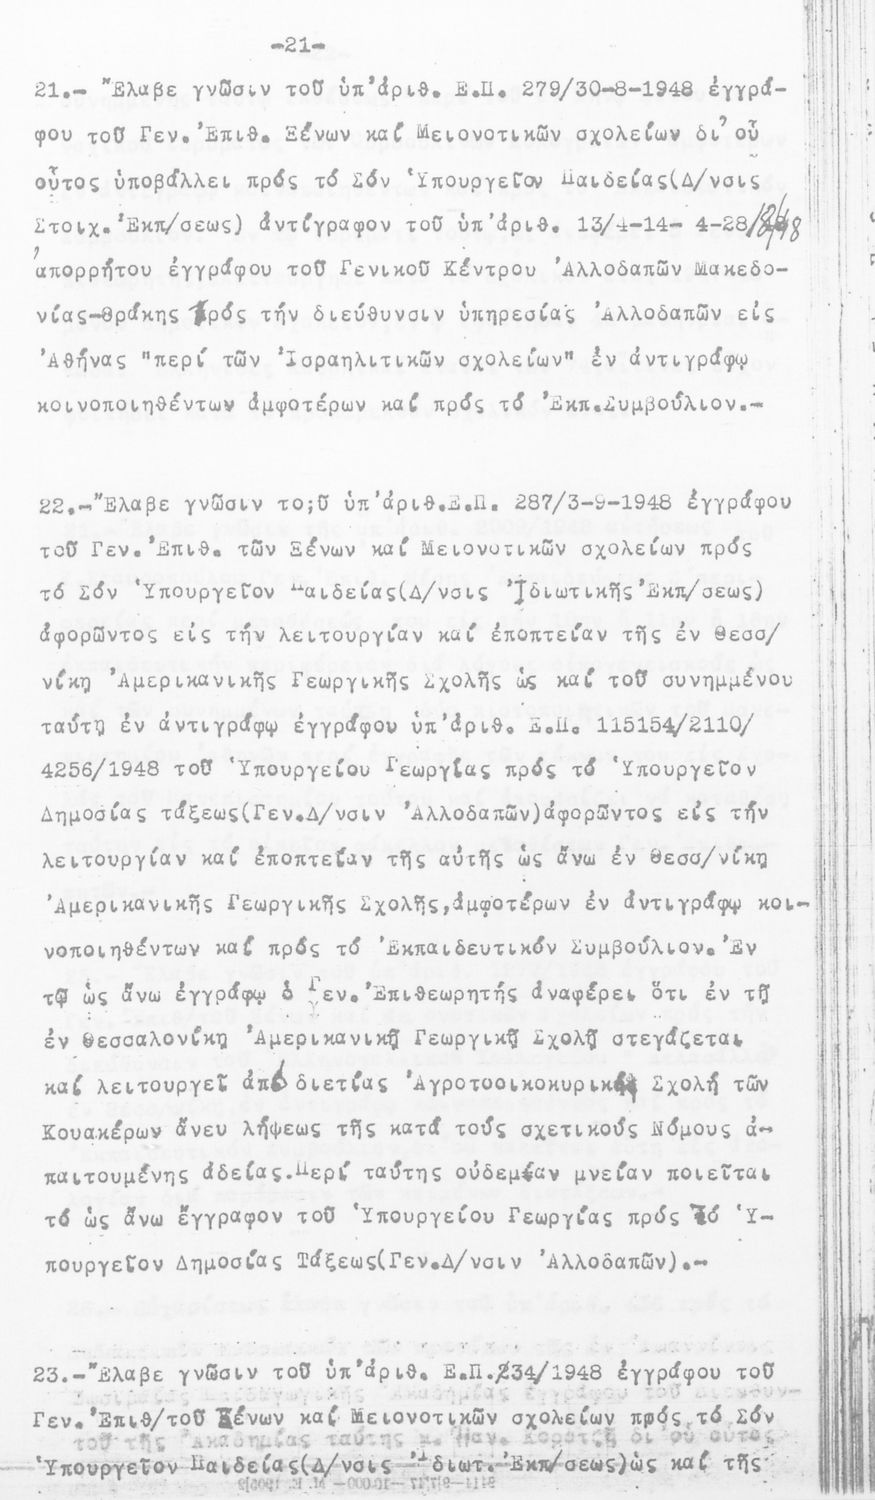 -21-
21.- Ἔλαβε γνῶσιν τοῦ ὑπ'ἀριθ. Ε.Π. 279/30-8-1948 ἐγγρά-
φου τοῦ Γεν. Ἐπιθ. Ξένων καί Μειονοτικῶν σχολείων δι' οὗ
οὗτος ὑποβάλλει πρός τό Σόν Ὑπουργεῖον Παιδείας(Δ/νσις
Στοιχ. Ἐκπ/σεως) ἀντίγραφον τοῦ ὑπ'ἀριθ. 13/4-14- 4-28/8/48
ἀπορρήτου ἐγγράφου τοῦ Γενικοῦ Κέντρου Ἀλλοδαπῶν Μακεδο-
νίας-Θράκης πρός τήν διεύθυνσιν ὑπηρεσίας Ἀλλοδαπῶν εἰς
Ἀθήνας "περί τῶν Ἰσραηλιτικῶν σχολείων" ἐν ἀντιγράφῳ
κοινοποιηθέντων ἀμφοτέρων καί πρός τό Ἐκπ.Συμβούλιον.-
22.-Ἔλαβε γνῶσιν το;ῦ ὑπ'ἀριθ.Ε.Π. 287/3-9-1948 ἐγγράφου
τοῦ Γεν. Ἐπιθ. τῶν Ξένων καί Μειονοτικῶν σχολείων πρός
τό Σόν Ὑπουργεῖον Παιδείας(Δ/νσις Ἰδιωτικῆς Ἐκπ/σεως)
ἀφορῶντος εἰς τήν λειτουργίαν καί ἐποπτείαν τῆς ἐν Θεσσ/
νίκῃ Ἀμερικανικῆς Γεωργικῆς Σχολῆς ὡς καί τοῦ συνημμένου
ταύτῃ ἐν ἀντιγράφῳ ἐγγράφου ὑπ'ἀριθ. Ε.Π. 115154/2110/
4256/1948 τοῦ Ὑπουργείου Γεωργίας πρός τό Ὑπουργεῖον
Δημοσίας τάξεως(Γεν.Δ/νσιν Ἀλλοδαπῶν)ἀφορῶντος εἰς τήν
λειτουργίαν καί ἐποπτείαν τῆς αὐτῆς ὡς ἄνω ἐν Θεσσ/νίκῃ
Ἀμερικανικῆς Γεωργικῆς Σχολῆς,ἀμφοτέρων ἐν ἀντιγράφῳ κοι-
νοποιηθέντων καί πρός τό Ἐκπαιδευτικόν Συμβούλιον. Ἐν
τῷ ὡς ἄνω ἐγγράφῳ ὁ Γεν. Ἐπιθεωρητής ἀναφέρει ὅτι ἐν τῇ
ἐν Θεσσαλονίκῃ Ἀμερικανικῇ Γεωργικῇ Σχολῇ στεγάζεται
καί λειτουργεῖ ἀπό διετίας Ἀγροτοοικοκυρική Σχολή τῶν
Κουακέρων ἄνευ λήψεως τῆς κατά τούς σχετικούς Νόμους ἀ-
παιτουμένης ἀδείας.Περί ταύτης οὐδεμίαν μνείαν ποιεῖται
τό ὡς ἄνω ἔγγραφον τοῦ Ὑπουργείου Γεωργίας πρός τό Ὑ-
πουργεῖον Δημοσίας Τάξεως(Γεν.Δ/νσιν Ἀλλοδαπῶν).-
23.-Ἔλαβε γνῶσιν τοῦ ὑπ'ἀριθ. Ε.Π.234/1948 ἐγγράφου τοῦ
Γεν. Ἐπιθ/τοῦ Ξένων καί Μειονοτικῶν σχολείων πρός τό Σόν
Ὑπουργεῖον Παιδείας(Δ/νσις Ἰδιωτ. Ἐκπ/σεως)ὡς καί τῆς